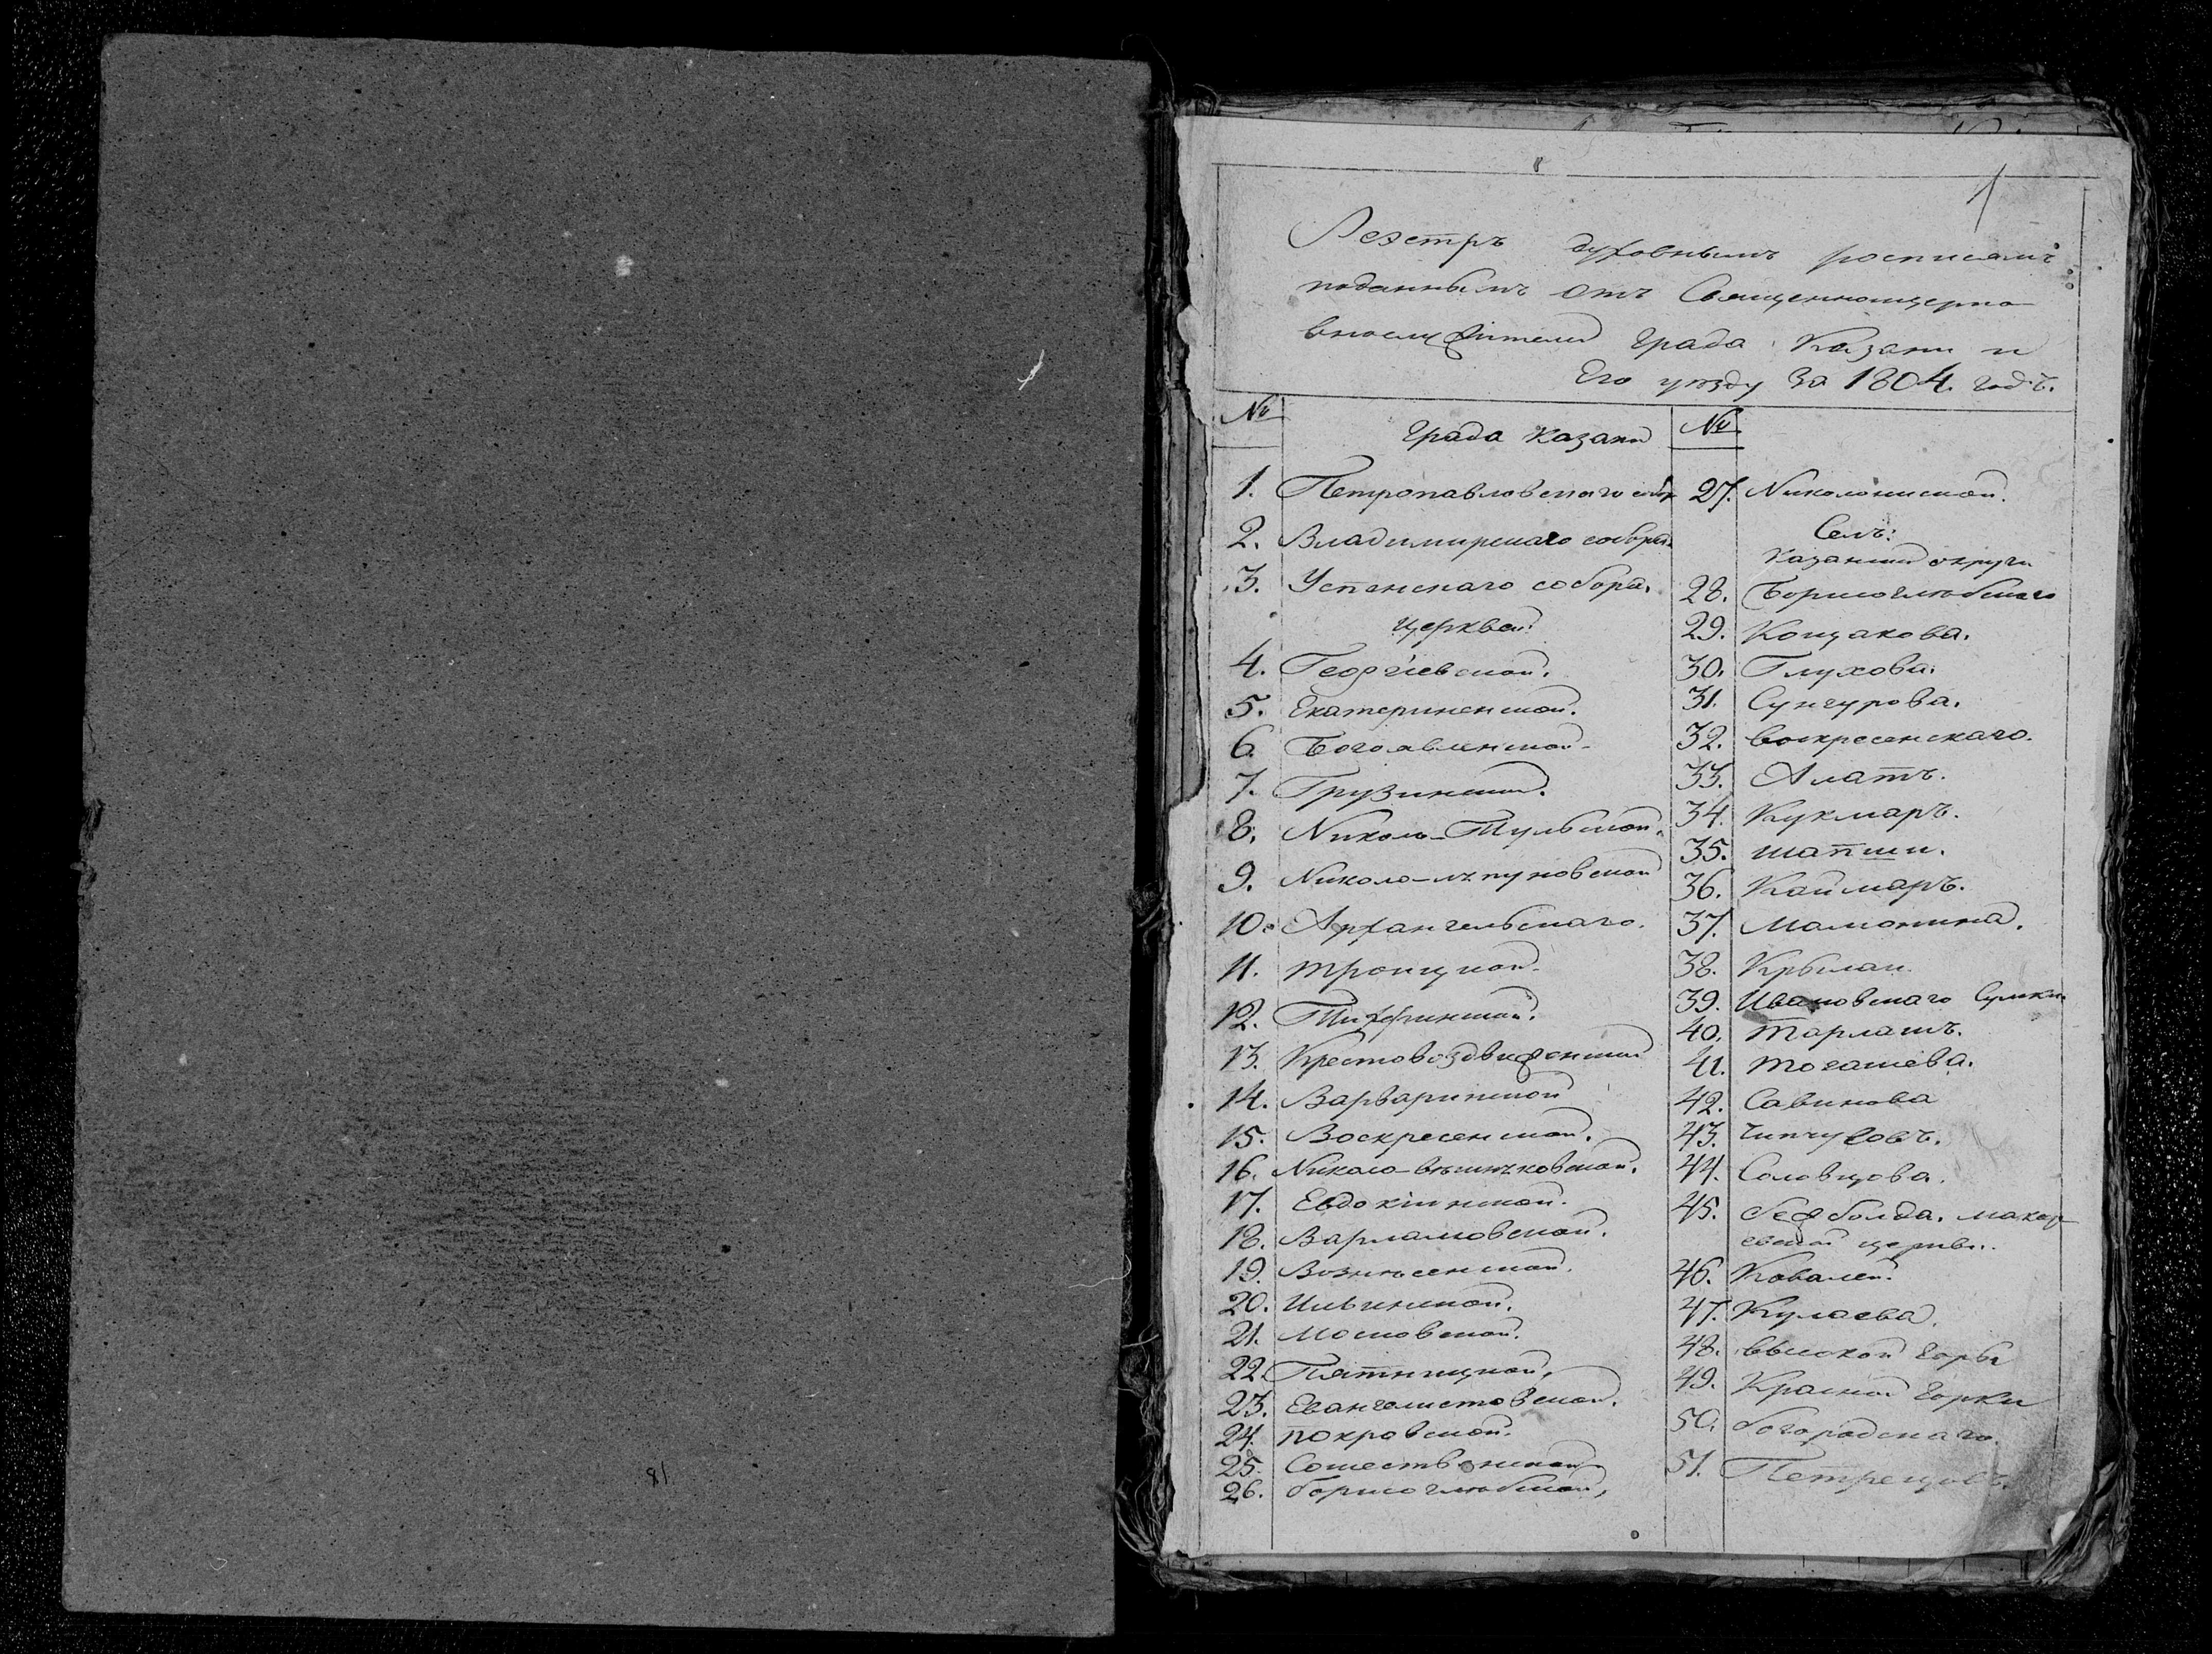 1
Реэстръ духовнымъ росписямъ
поданнымъ отъ Священноцерко
внослужителей града Казани и
Его уѣзду за 1804. годъ.
№
Града Казани
1. Петропавловскаго собор
2. Владимирскаго собора.
3. Успенскаго собора.
церквей:
4. Георгіевской.
5. Екатерининской.
6. Богоявленской
7. Грузинской.
8. Николо-Тульской.
9. Николо-ляпуновской
10. Архангельскаго.
11. троицкой.
12. Тихфинской.
13. Крестовоздвиженской
14. Варваринской
15. Воскресенской.
16. Николо-вешняковской.
17. Евдокіинской.
18. Варламовской.
19. Вознесенской.
20. Ильинской.
21. Московской.
22. Пятницкой.
23. Евангелистовской.
24. покровской.
25. Сошественской
26. борисоглебской,
№
27. Николониской.
Селъ:
Казанской округи
28. Борисоглебскаго
29. Кощакова.
30. Глухова.
31. Сунгурова.
32. воскресенскаго.
33. Алатъ.
34. Кукмаръ.
35. шапши.
36. Каймаръ.
37. Мамонина.
38. Крылаи.
39. Ивановскаго Сумки
40. тарлашъ.
41. тогашева.
42. Савинова
43. Чипчуговъ.
44. Соловцова.
45. седболда. макар
евской церкви.
46. Ковалей.
47. Кулаева.
48. высокой Горы
49. Красной Горки
50. богородскаго.
51. Петрецовъ.
81